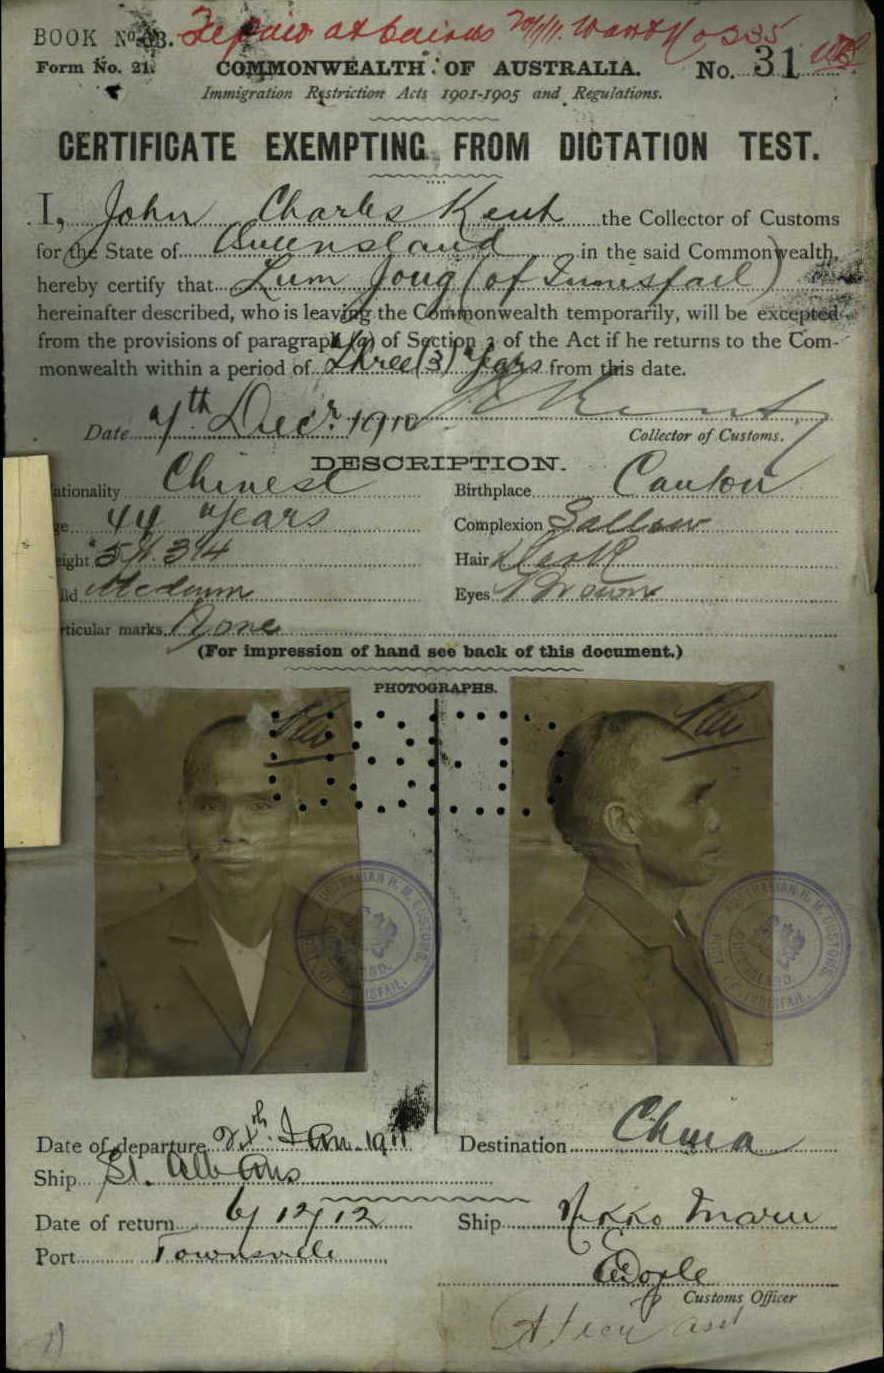 BOOK No. 33.
at Cairns 20/1/11.
Form No. 21.
COMMONWEALTH OF AUSTRALIA.
No. 31
Immigration Restriction Acts 1901-1905 and Regulations.
CERTIFICATE EXEMPTING FROM DICTATION TEST.
I, John Charles Kent the Collector of Customs
for the State of Queensland in the said Commonwealth,
hereby certify that Lum Joug (of Innisfail)
hereinafter described, who is leaving the Commonwealth temporarily, will be excepted
from the provisions of paragraph (a) of Section 3 of the Act if he returns to the Com-
monwealth within a period of three (3) years from this date.
Date 7th Decr. 1910 Kent
Collector of Customs.
DESCRIPTION.
ationality Chinese Birthplace Canton
ge 44 years Complexion Sallow
eight 5 ft 3 3/4 Hair Dark
ild Medium Eyes Brown
rticular marks None
(For impression of hand see back of this document.)
PHOTOGRAPHS.
Date of departure Jan. 1911 Destination China
Ship St. Albans
Date of return 6/12/12 Ship Nikko Maru
Port Townsville
Doyle
Customs Officer